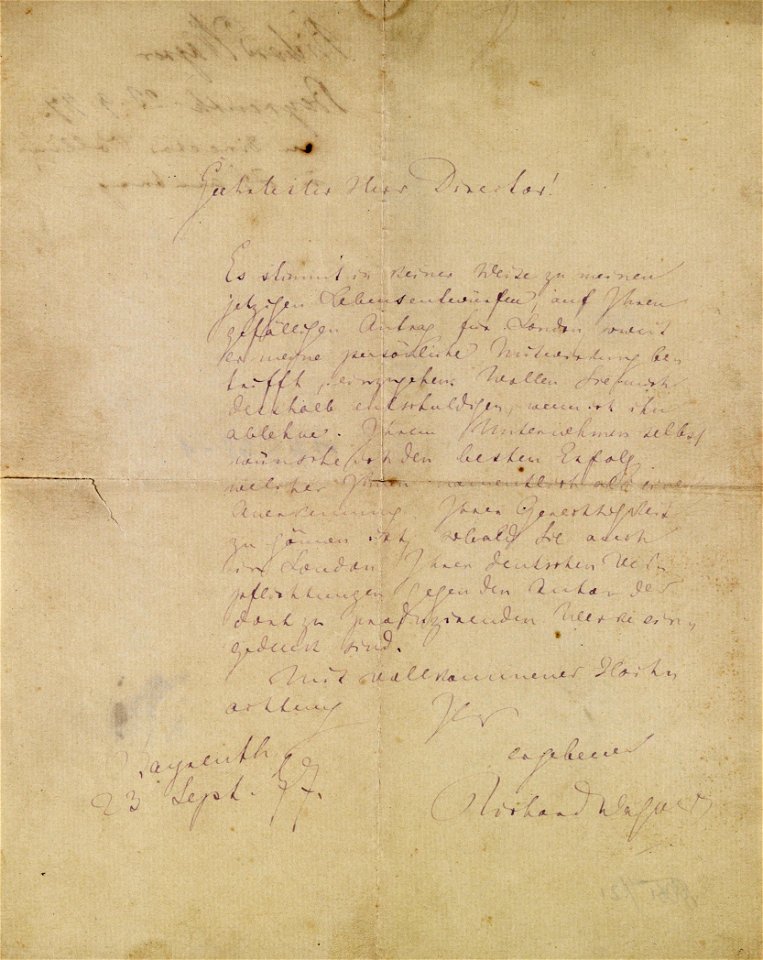 Geehrtester Herr Director!
Es stimmt in keiner Weise zu meinen
jetzigen Lebensentwürfen, auf Ihren
gefälligen Antrag für London, soweit
er meine persönliche Mitwirkung be-
trifft, einzugehen. Wollen Sie mich
deshalb entschuldigen, wenn ich ihn
ablehne. Ihrem Unternehmen selbst
wünsche ich den besten Erfolg,
welcher Ihnen namentlich als eine
Anerkennung Ihrer Gerechtigkeit
zu gönnen ist, sobald Sie auch
in London Ihrer deutschen Ver-
pflichtungen gegen den Autor der
dort zu produzirenden Werke ein-
gedenk sind.
Mit vollkommener Hoch-
achtung Ihr
ergebener
Richard Wagner
Bayreuth
23 Sept. 77.